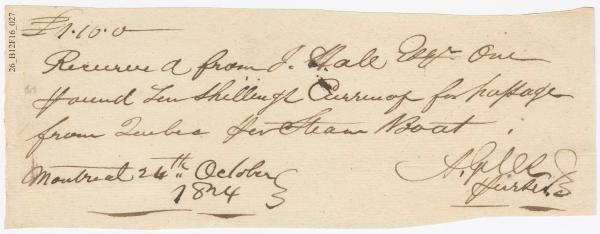 26_B12F16_027
£1.10.0
Received from J. Hall Esqr. One
pound Ten Shillings Currency for passage
from Quebec per Steam Boat
Montreal 24th October
1824
Purser